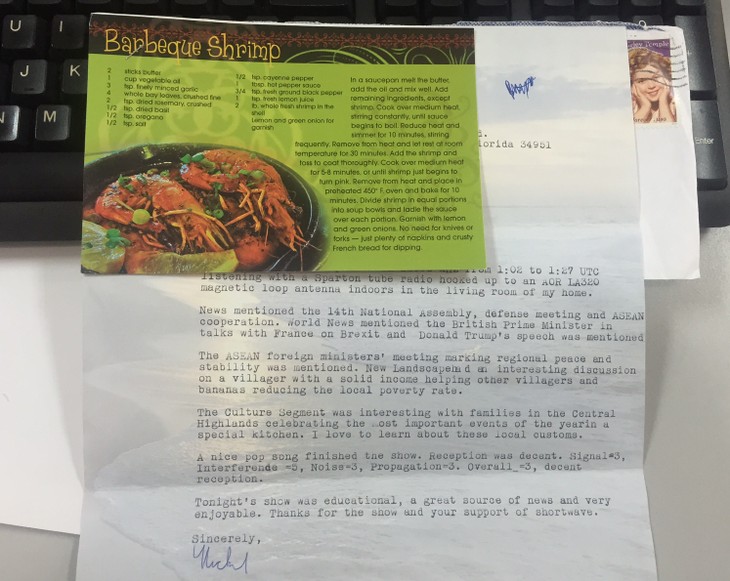 Barbeque Shrimp
2 sticks butter
1 cup vegetable oil
3 tsp. finely minced garlic
4 whole bay leaves, crushed fine
2 tsp. dried rosemary, crushed
1/2 tsp. dried basil
1/2 tsp. oregano
1/2 tsp. salt
1/2 tsp. cayenne pepper
1 tbsp. hot pepper sauce
3/4 tsp. fresh ground black pepper
tsp. fresh lemon juice
2 lb. whole fresh shrimp in the
shell
Lemon and green onion for
garnish
In a saucepan melt the butter,
add the oil and mix well. Add
remaining ingredients, except
shrimp. Cook over medium heat,
stirring constantly, until sauce
begins to boil. Reduce heat and
simmer for 10 minutes, stirring
frequently. Remove from heat and let rest at room
temperature for 30 minutes. Add the shrimp and
toss to coat thoroughly. Cook over medium heat
for 5-8 minutes, or until shrimp just begins to
turn pink. Remove from heat and place in
preheated 450° F. oven and bake for 10
minutes. Divide shrimp in equal portions
into soup bowls and ladle the sauce
over each portion. Garnish with lemon
and green onions. No need for knives or
forks — just plenty of napkins and crusty
French bread for dipping.
d.
lorida 34951
ley Temple
from 1:02 to 1:27 UTC
listening with a Sparton tube radio hooked up to an AOR LA320
magnetic loop antenna indoors in the living room of my home.
News mentioned the 14th National Assembly, defense meeting and ASEAN
cooperation. World News mentioned the British Prime Minister in
talks with France on Brexit and Donald Trump's speech was mentioned
The ASEAN foreign ministers' meeting marking regional peace and
stability was mentioned. New Landscapemd an interesting discussion
on a villager with a solid income helping other villagers and
bananas reducing the local poverty rate.
The Culture Segment was interesting with families in the Central
Highlands celebrating the most important events of the yearin a
special kitchen. I love to learn about these local customs.
A nice pop song finished the show. Reception was decent. Signal=3,
Interferende =5, Noise=3, Propagation=3. Overall =3, decent
reception.
Tonight's show was educational, a great source of news and very
enjoyable. Thanks for the show and your support of shortwave.
Sincerely,
U
I
J
K
N
M
Enter